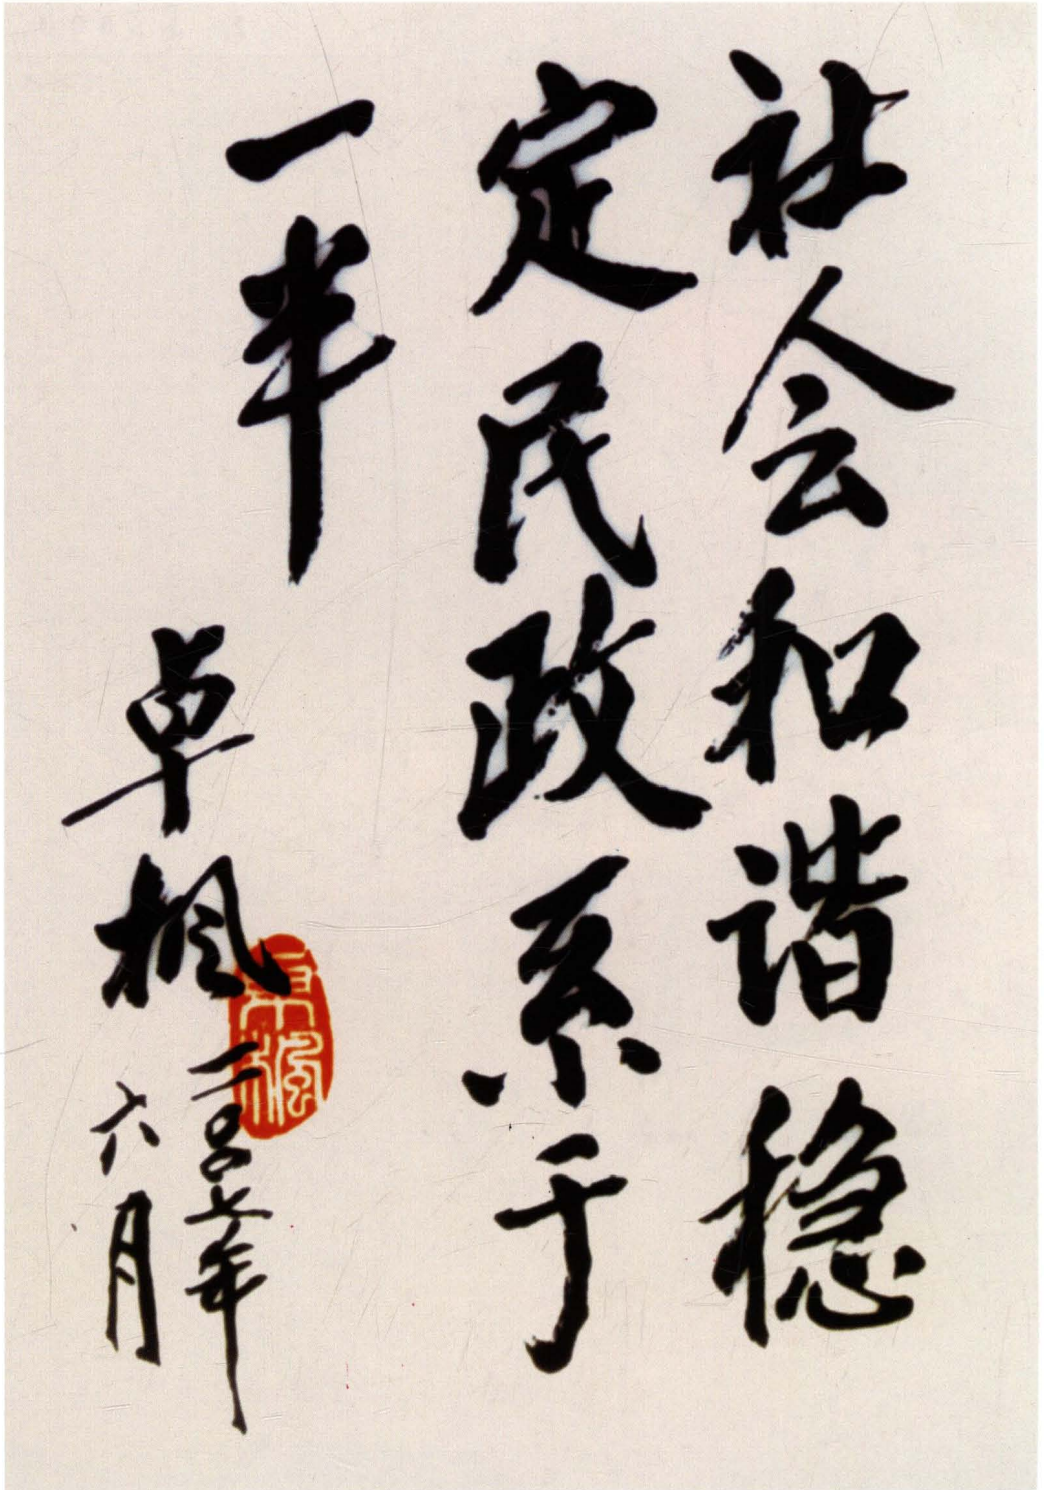 社会和谐稳
定民政系于
一半
卓枫
二〇〇七年
六月
卓枫